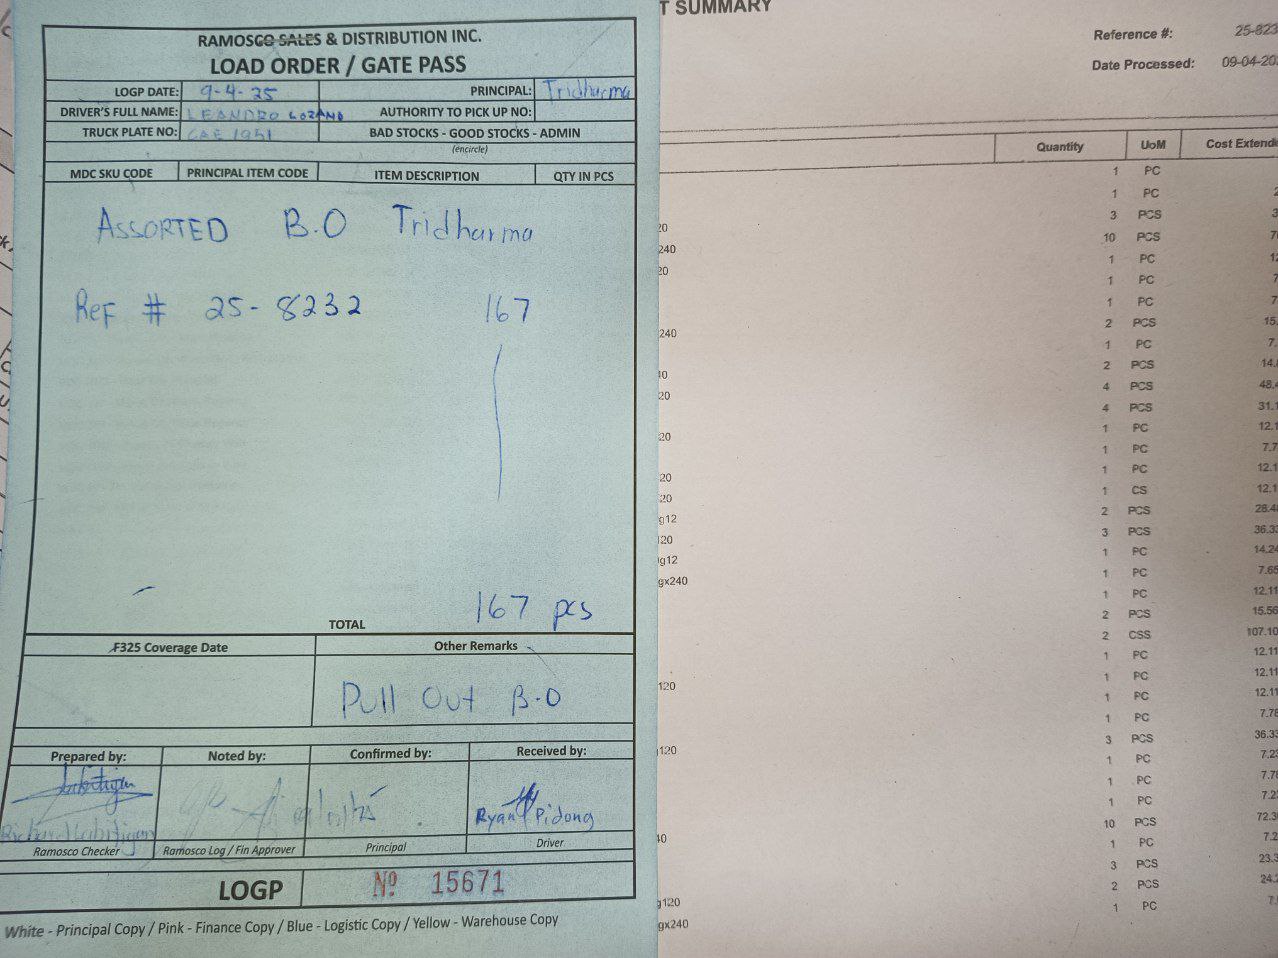 RAMOSCO SALES & DISTRIBUTION INC.
LOAD ORDER / GATE PASS
LOGP DATE: 9-4-25 PRINCIPAL: Tridharma
DRIVER'S FULL NAME: LEANDRO LOZANO AUTHORITY TO PICK UP NO:
TRUCK PLATE NO: CAE 1951 BAD STOCKS - GOOD STOCKS - ADMIN
(encircle)
MDC SKU CODE PRINCIPAL ITEM CODE ITEM DESCRIPTION QTY IN PCS
ASSORTED B.O Tridharma
Ref # 25-8232 167
TOTAL 167 pcs
F325 Coverage Date Other Remarks
Pull Out B.O
Prepared by: Noted by: Confirmed by: Received by:
Ryan Pidong
Ramosco Checker Ramosco Log / Fin Approver Principal Driver
LOGP Nº 15671
White - Principal Copy / Pink - Finance Copy / Blue - Logistic Copy / Yellow - Warehouse Copy
T SUMMARY
Reference #: 25-823
Date Processed: 09-04-20
Quantity UoM Cost Extend
1 PC
1 PC
20 3 PCS
240 10 PCS
20 1 PC
1 PC
1 PC
240 2 PCS 15.
1 PC 7.
2 PCS 14.
20 4 PCS 48.4
4 PCS 31.1
20 1 PC 12.1
1 PC 7.7
20 1 PC 12.1
20 1 CS 12.1
g12 2 PCS 28.48
120 3 PCS 36.33
g12 1 PC 14.24
gx240 1 PC 7.65
1 PC 12.11
2 PCS 15.56
2 CSS 107.10
1 PC 12.11
120 1 PC 12.11
1 PC 12.11
1 PC 7.78
120 3 PCS 36.33
1 PC 7.23
1 PC 7.78
1 PC 7.2
40 10 PCS 72.3
1 PC 7.2
3 PCS 23.3
120 2 PCS 24.2
gx240 1 PC